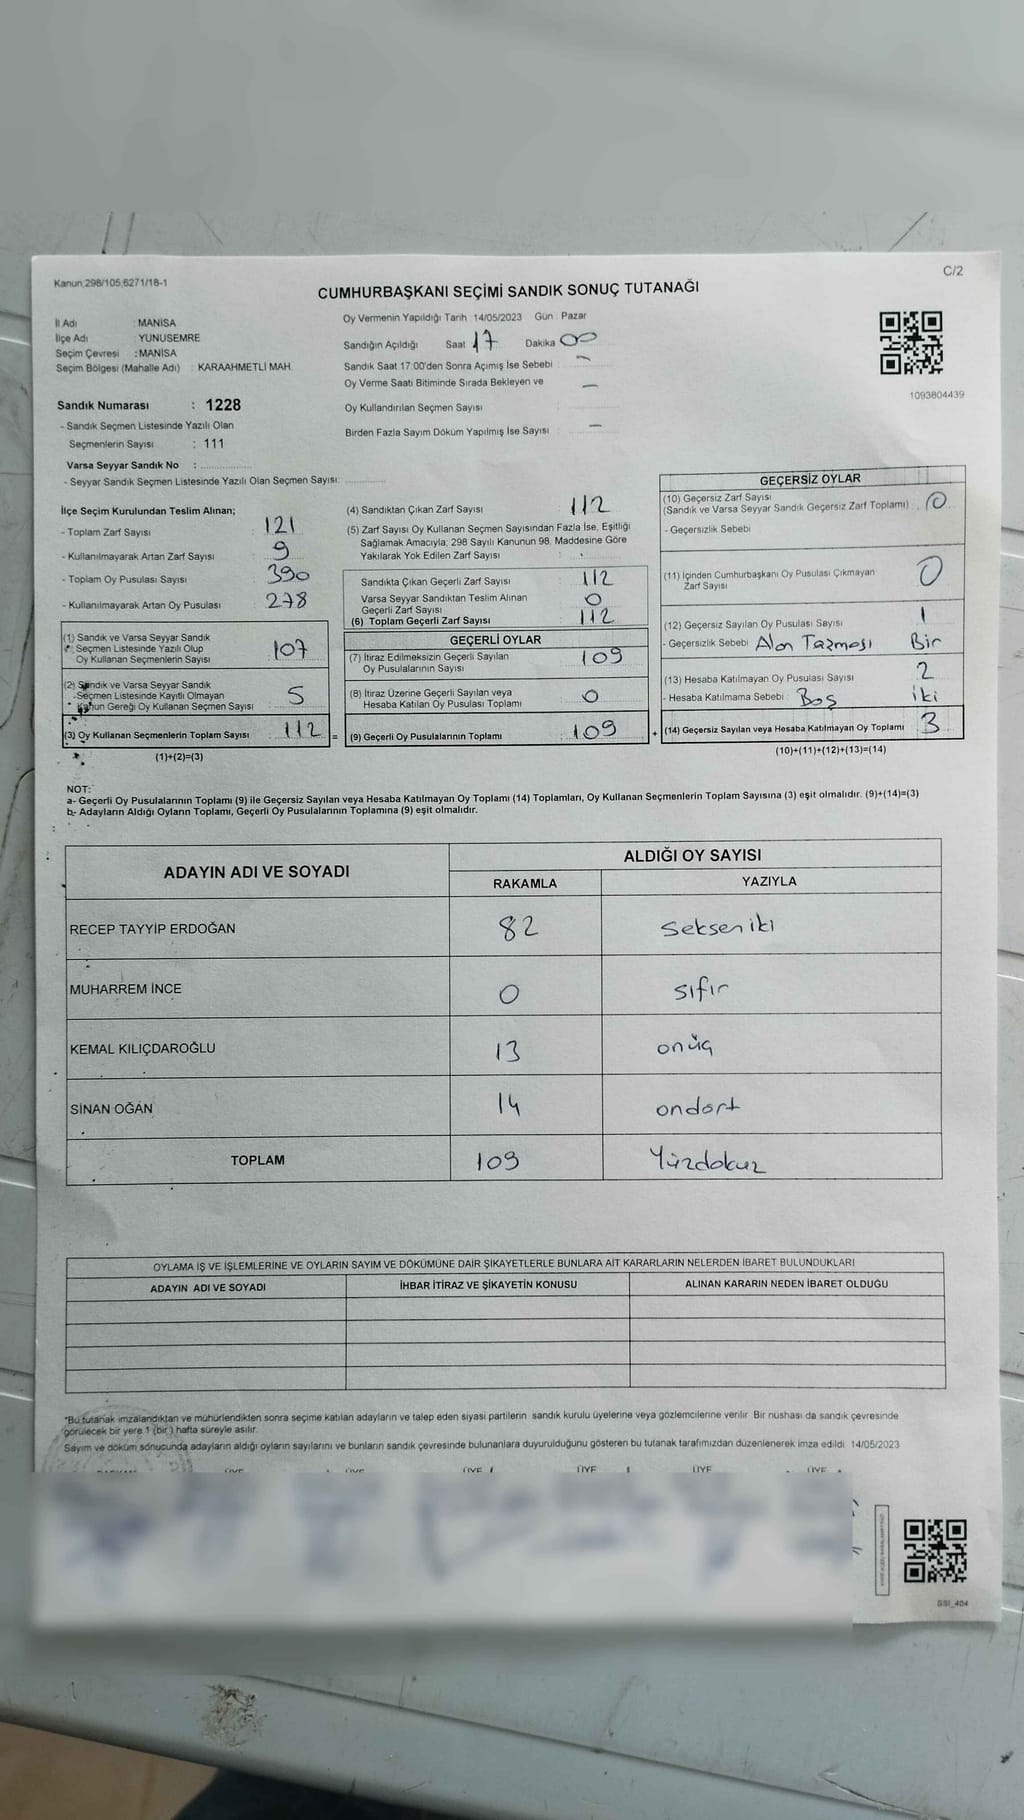 C/2
Kanun,298/105,6271/18-1
CUMHURBAŞKANI SEÇİMİ SANDIK SONUÇ TUTANAĞI
İl Adı : MANİSA
İlçe Adı : YUNUSEMRE
Seçim Çevresi : MANİSA
Seçim Bölgesi (Mahalle Adı) : KARAAHMETLİ MAH.
Sandık Numarası : 1228
- Sandık Seçmen Listesinde Yazılı Olan
Seçmenlerin Sayısı : 111
Varsa Seyyar Sandık No :
- Seyyar Sandık Seçmen Listesinde Yazılı Olan Seçmen Sayısı:
Oy Vermenin Yapıldığı Tarih : 14/05/2023 Gün : Pazar
Sandığın Açıldığı Saat 17 Dakika 00
Sandık Saat 17:00'den Sonra Açımış İse Sebebi : -
Oy Verme Saati Bitiminde Sırada Bekleyen ve -
Oy Kullandırılan Seçmen Sayısı
Birden Fazla Sayım Döküm Yapılmış İse Sayısı : -
1093804439
İlçe Seçim Kurulundan Teslim Alınan;
- Toplam Zarf Sayısı : 121
- Kullanılmayarak Artan Zarf Sayısı : 9
- Toplam Oy Pusulası Sayısı : 390
- Kullanılmayarak Artan Oy Pusulası : 278
(1) Sandık ve Varsa Seyyar Sandık
Seçmen Listesinde Yazılı Olup
Oy Kullanan Seçmenlerin Sayısı 107
(2) Sandık ve Varsa Seyyar Sandık
Seçmen Listesinde Kayıtlı Olmayan
Kanun Gereği Oy Kullanan Seçmen Sayısı 5
(3) Oy Kullanan Seçmenlerin Toplam Sayısı 112 =
(1)+(2)=(3)
(4) Sandıktan Çıkan Zarf Sayısı : 112
(5) Zarf Sayısı Oy Kullanan Seçmen Sayısından Fazla İse, Eşitliği
Sağlamak Amacıyla; 298 Sayılı Kanunun 98. Maddesine Göre
Yakılarak Yok Edilen Zarf Sayısı :
Sandıkta Çıkan Geçerli Zarf Sayısı : 112
Varsa Seyyar Sandıktan Teslim Alınan
Geçerli Zarf Sayısı : 0
(6) Toplam Geçerli Zarf Sayısı : 112
GEÇERLİ OYLAR
(7) İtiraz Edilmeksizin Geçerli Sayılan
Oy Pusulalarının Sayısı : 109
(8) İtiraz Üzerine Geçerli Sayılan veya
Hesaba Katılan Oy Pusulası Toplamı : 0
(9) Geçerli Oy Pusulalarının Toplamı : 109 +
GEÇERSİZ OYLAR
(10) Geçersiz Zarf Sayısı
(Sandık ve Varsa Seyyar Sandık Geçersiz Zarf Toplamı) : 0
- Geçersizlik Sebebi
(11) İçinden Cumhurbaşkanı Oy Pusulası Çıkmayan
Zarf Sayısı : 0
(12) Geçersiz Sayılan Oy Pusulası Sayısı : 1
- Geçersizlik Sebebi Alan Taşması Bir
(13) Hesaba Katılmayan Oy Pusulası Sayısı : 2
- Hesaba Katılmama Sebebi : Boş iki
(14) Geçersiz Sayılan veya Hesaba Katılmayan Oy Toplamı : 3
(10)+(11)+(12)+(13)=(14)
NOT:
a- Geçerli Oy Pusulalarının Toplamı (9) ile Geçersiz Sayılan veya Hesaba Katılmayan Oy Toplamı (14) Toplamları, Oy Kullanan Seçmenlerin Toplam Sayısına (3) eşit olmalıdır. (9)+(14)=(3)
b- Adayların Aldığı Oyların Toplamı, Geçerli Oy Pusulalarının Toplamına (9) eşit olmalıdır.
ADAYIN ADI VE SOYADI ALDIĞI OY SAYISI
RAKAMLA YAZIYLA
RECEP TAYYİP ERDOĞAN 82 seksen iki
MUHARREM İNCE 0 sıfır
KEMAL KILIÇDAROĞLU 13 onüç
SİNAN OĞAN 14 ondört
TOPLAM 109 Yüzdokuz
OYLAMA İŞ VE İŞLEMLERİNE VE OYLARIN SAYIM VE DÖKÜMÜNE DAİR ŞİKAYETLERLE BUNLARA AİT KARARLARIN NELERDEN İBARET BULUNDUKLARI
ADAYIN ADI VE SOYADI İHBAR İTİRAZ VE ŞİKAYETİN KONUSU ALINAN KARARIN NEDEN İBARET OLDUĞU
*Bu tutanak imzalandıktan ve mühürlendikten sonra seçime katılan adayların ve talep eden siyasi partilerin sandık kurulu üyelerine veya gözlemcilerine verilir. Bir nüshası da sandık çevresinde
görülecek bir yere 1 (bir) hafta süreyle asılır.
Sayım ve döküm sonucunda adayların aldığı oyların sayılarını ve bunların sandık çevresinde bulunanlara duyurulduğunu gösteren bu tutanak tarafımızdan düzenlenerek imza edildi. 14/05/2023
ÜYE ÜYE ÜYE ÜYE ÜYE ÜYE
SSI_404